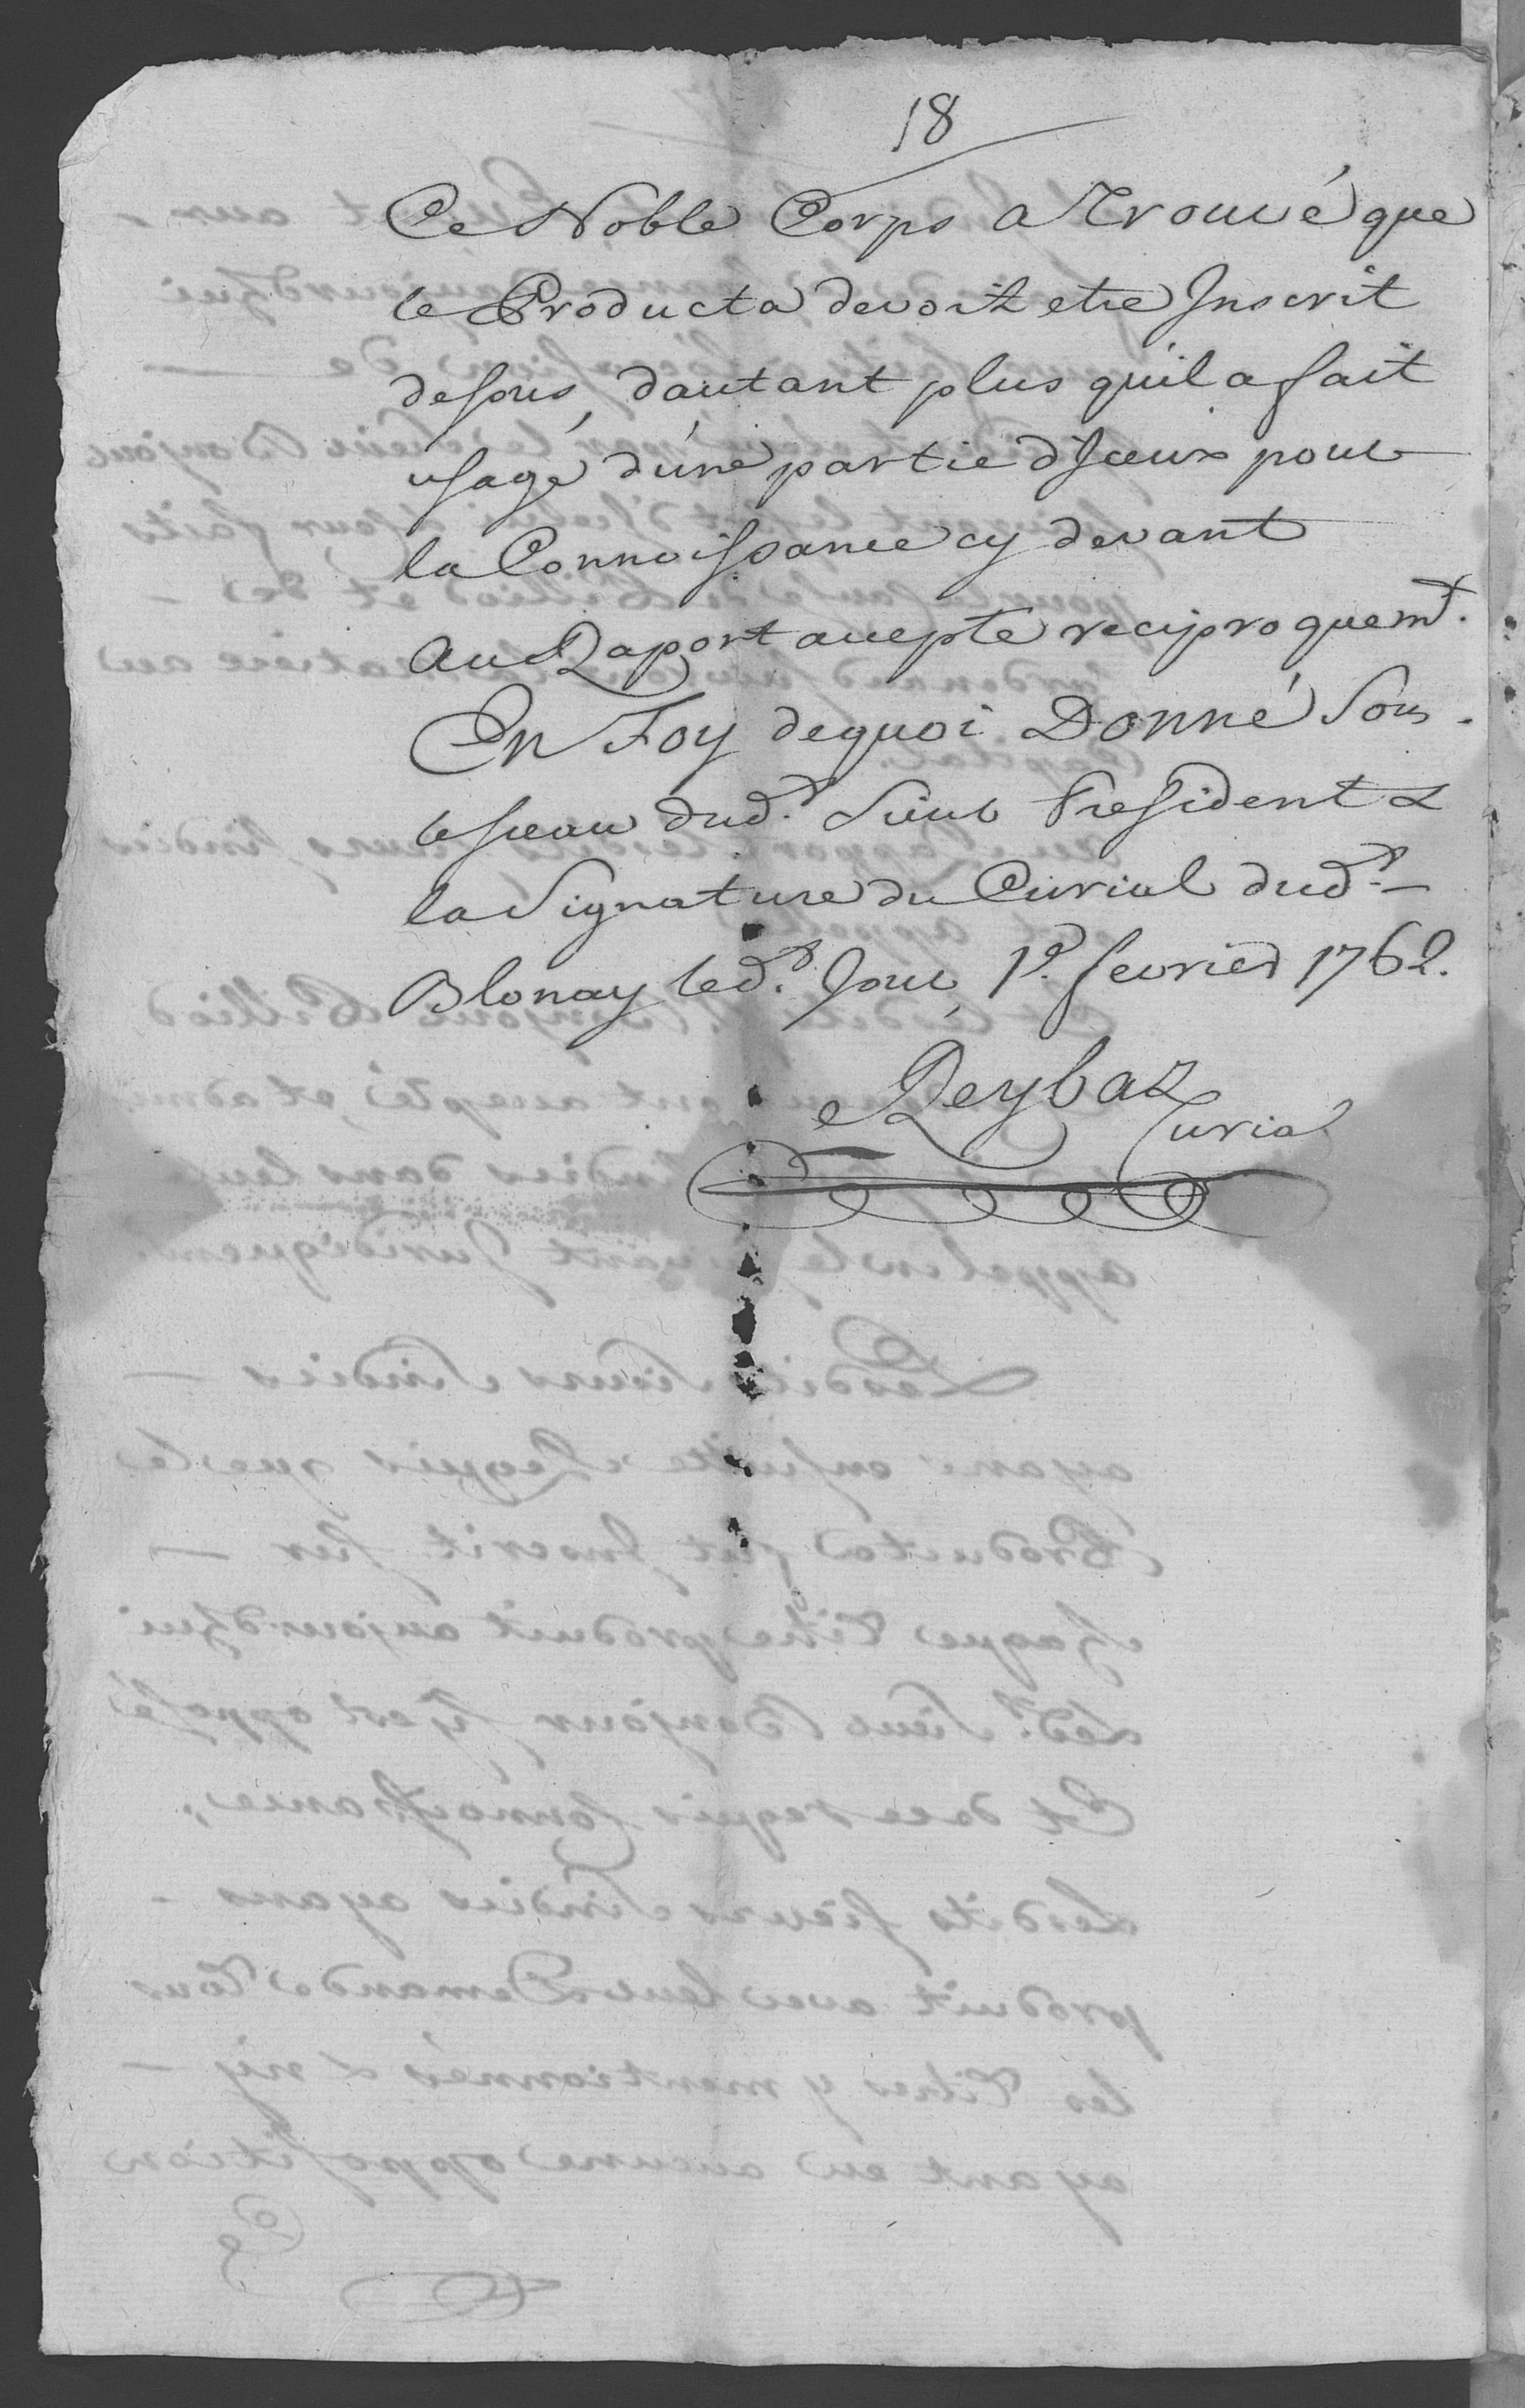 18
Ce Noble Corps a Trouvé que
le Producta devoit etre Inscrit
dessus, dautant plus qu'il a fait
usage d'une partie d'Iceux pour
la Connoissance cy devant
Au Raport accepté reciproquemt.
En Foy dequoi Donné Sous
le sceau dudt. Sieur President &
la Signature du Curial dudt.
Blonay ledt. Jour 1er. fevrier 1762.
Reybaz
Curial